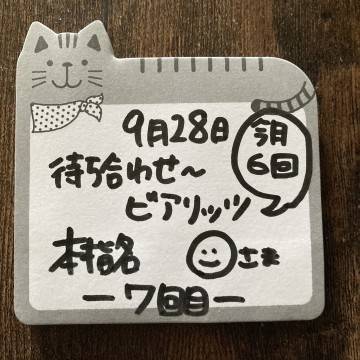 9月28日
今月
6回
待ち合わせ~
ビアリッツ
本指名 さま
ー7回目ー